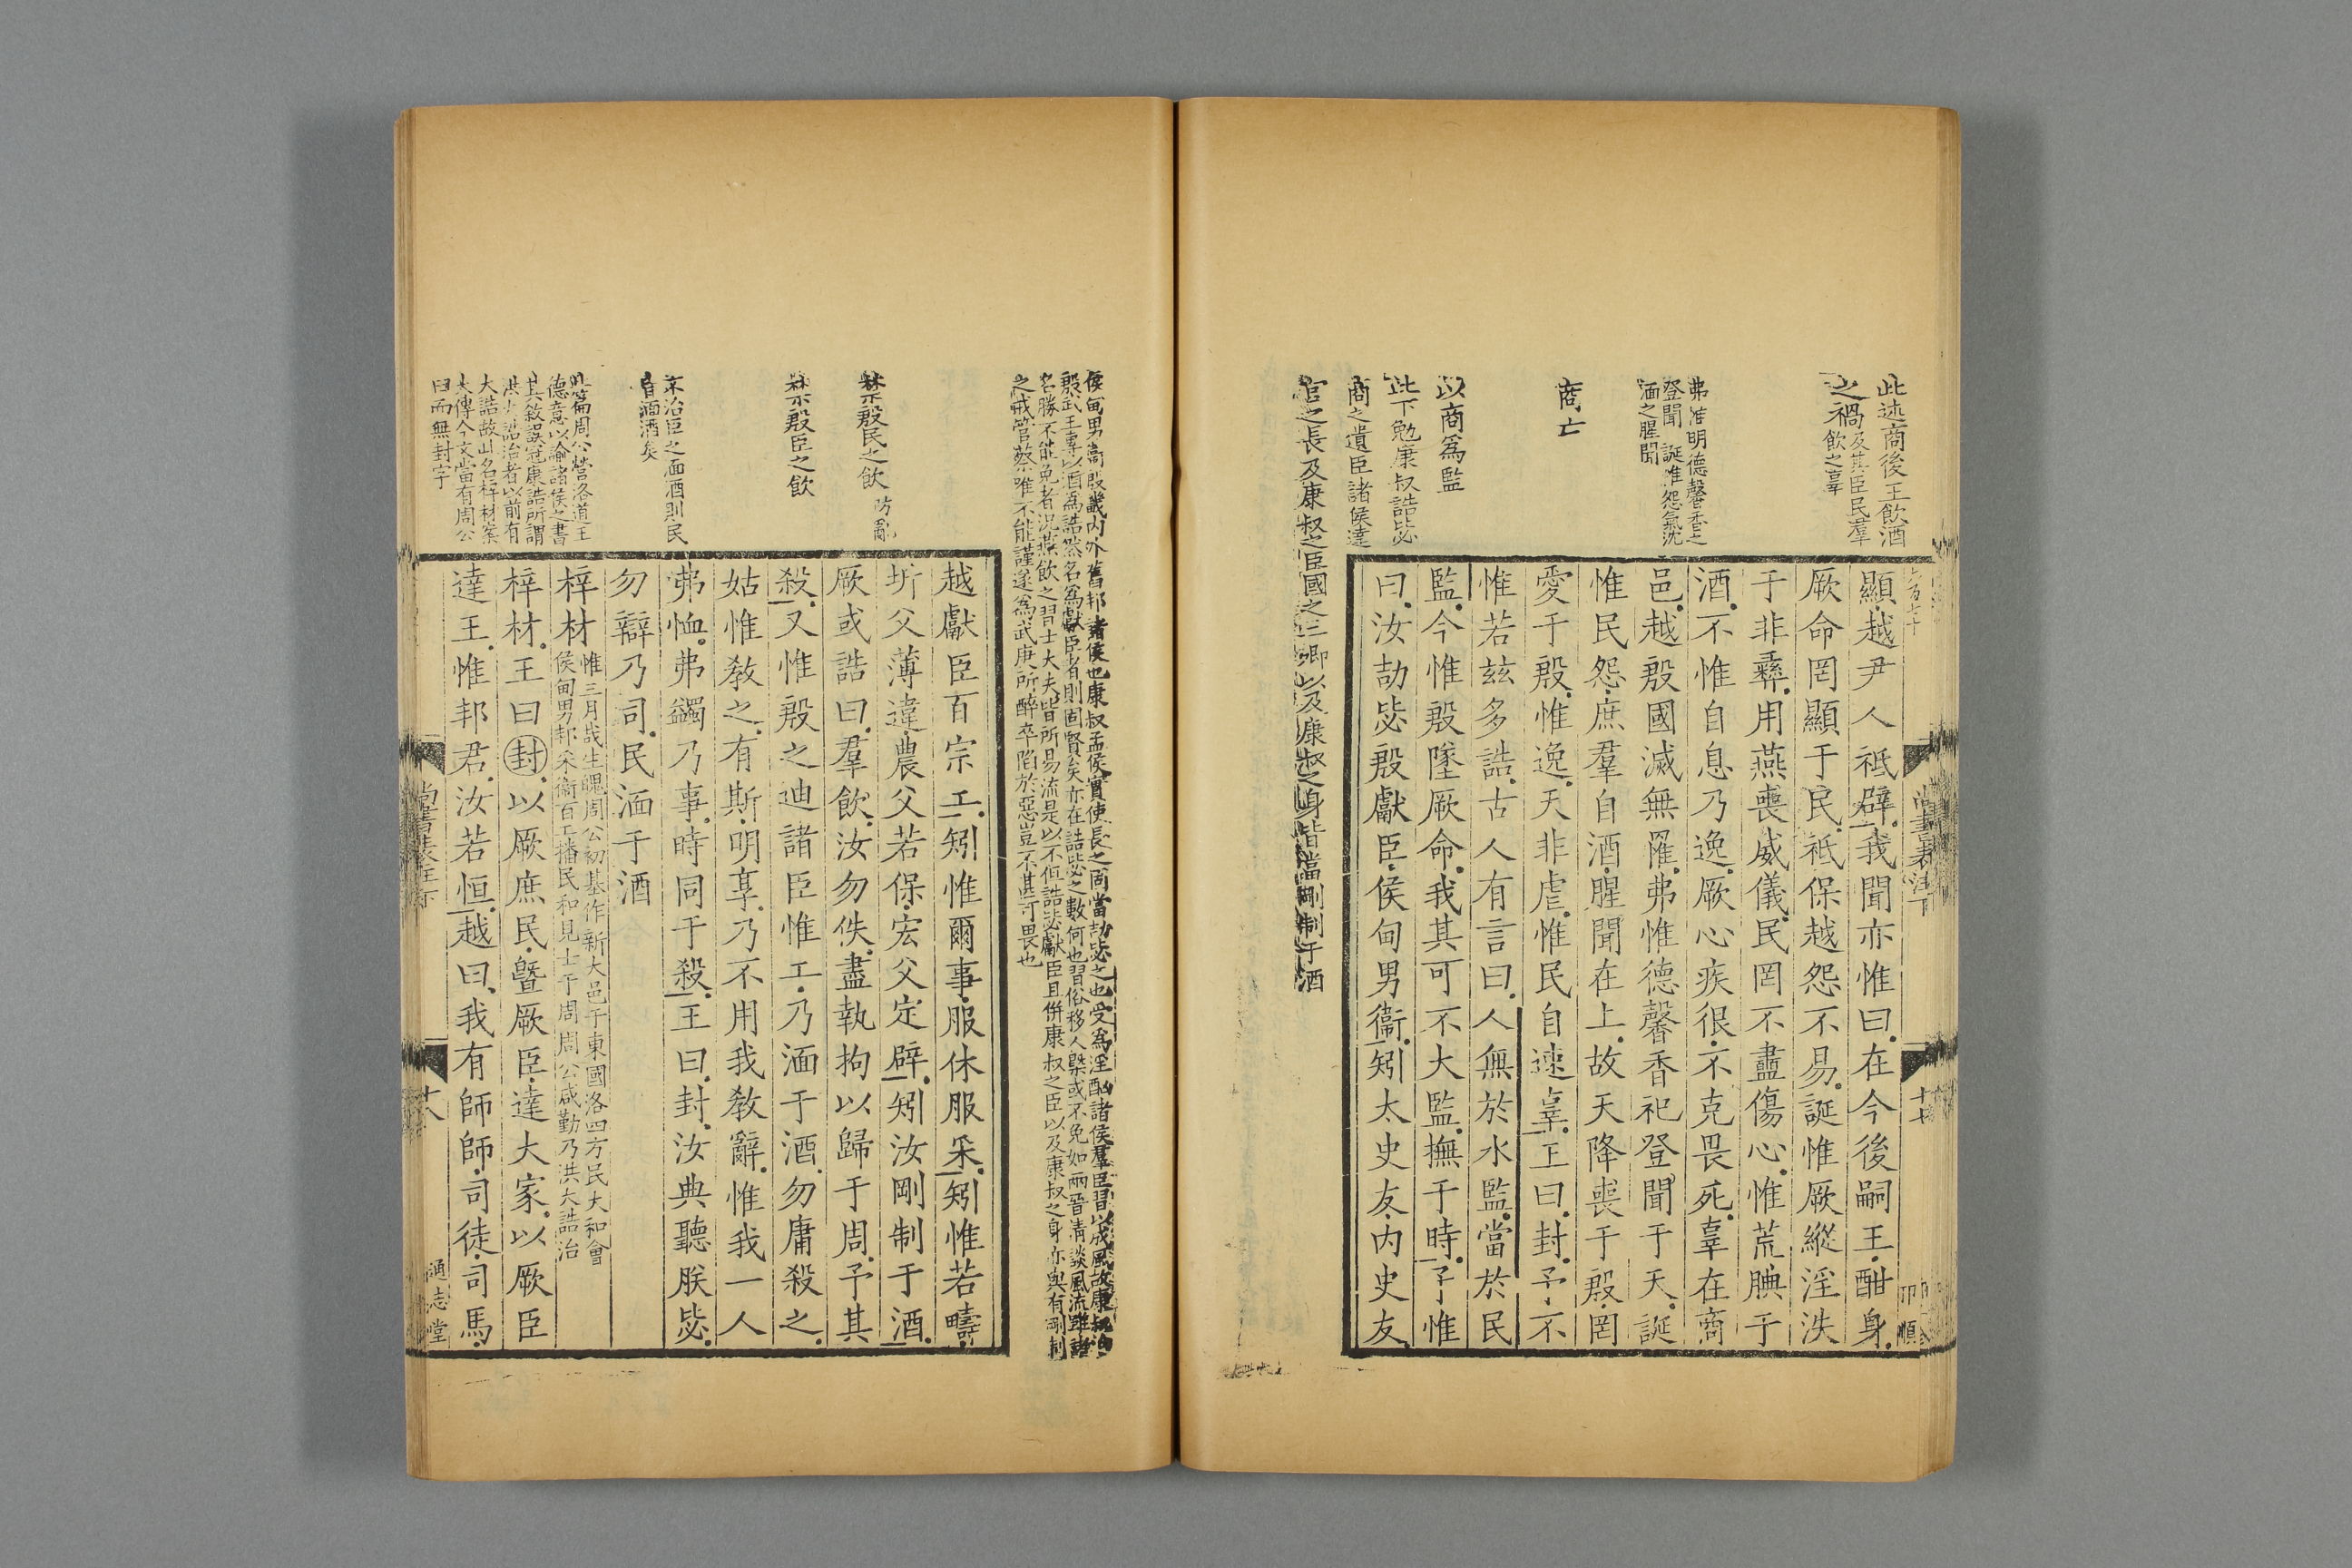 此述商後王飲酒
之禍及其臣民羣
飲之辜
弗惟明德馨香之
登聞誕惟怨氣沈
湎之腥聞
商亡
以商爲監
此下勉康叔誥毖
商之遺臣諸侯達
官之長及康叔之臣國之三卿以及康叔之身皆當剛制于酒
顯越尹人祗辟我聞亦惟曰在今後嗣王酣身
厥命罔顯于民祗保越怨不易誕惟厥縱淫泆
于非彝用燕喪威儀民罔不衋傷心惟荒腆于
酒不惟自息乃逸厥心疾很不克畏死辜在商
邑越殷國滅無罹弗惟德馨香祀登聞于天誕
惟民怨庶羣自酒腥聞在上故天降喪于殷罔
愛于殷惟逸天非虐惟民自速辜王曰封予不
惟若茲多誥古人有言曰人無於水監當於民
監今惟殷墜厥命我其可不大監撫于時予惟
曰汝劼毖殷獻臣侯甸男衞矧太史友內史友
侯甸男衞殷畿內外舊邦諸侯也康叔孟侯實使長之同當劼毖之也受爲淫酗諸侯羣臣習以成風故康叔治
殷武王專以酒爲誥然名爲獻臣者則固賢矣亦在誥毖之數何也習俗移人槩或不免如兩晉清談風流雖諸
名勝不能免者況燕飲之習士大夫皆所易流是以不但誥毖獻臣且併康叔之臣以及康叔之身亦與有剛制
之戒管蔡唯不能謹遂爲武庚所醉卒陷於惡豈不甚可畏也
禁殷民之飲防亂
禁殷臣之飲
不治臣之湎酒則民
皆湎酒矣
此篇周公營洛道王
德意以諭諸侯之書
其敘誤冠康誥所謂
洪大誥治者以前有
大誥故山名梓材案
大傳今文當有周公
曰而無封字
越獻臣百宗工矧惟爾事服休服采矧惟若疇
圻父薄違農父若保宏父定辟矧汝剛制于酒
厥或誥曰羣飲汝勿佚盡執拘以歸于周予其
殺又惟殷之迪諸臣惟工乃湎于酒勿庸殺之
姑惟敎之有斯明享乃不用我敎辭惟我一人
弗恤弗蠲乃事時同于殺王曰封汝典聽朕毖
勿辯乃司民湎于酒
梓材惟三月哉生魄周公初基作新大邑于東國洛四方民大和會
侯甸男邦采衞百工播民和見士于周周公咸勤乃洪大誥治
梓材王曰封以厥庶民曁厥臣達大家以厥臣
達王惟邦君汝若恒越曰我有師師司徒司馬
通志堂